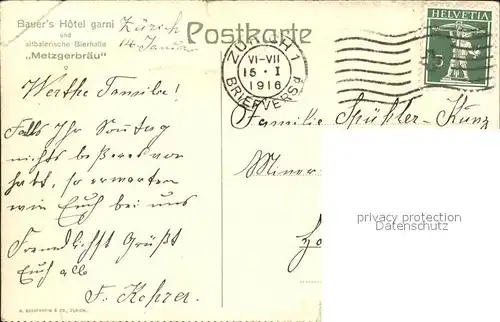 Bauer's Hôtel garni
und
altbaierische Bierhalle
„Metzgerbräu"
Zürich
14. Januar
Postkarte
ZÜRICH 1
VI-VII
15·I
1916
BRIEFVERSD.
HELVETIA
5
Werthe Familie!
Falls Ihr Sonntag
nichts beßeres vor
habt, so erwarten
wir Euch bei uns
Freundlichst Grüßt
Euch alle
F. Rohrer.
Familie Spühler-Kunz
Miner
privacy protection
Datenschutz